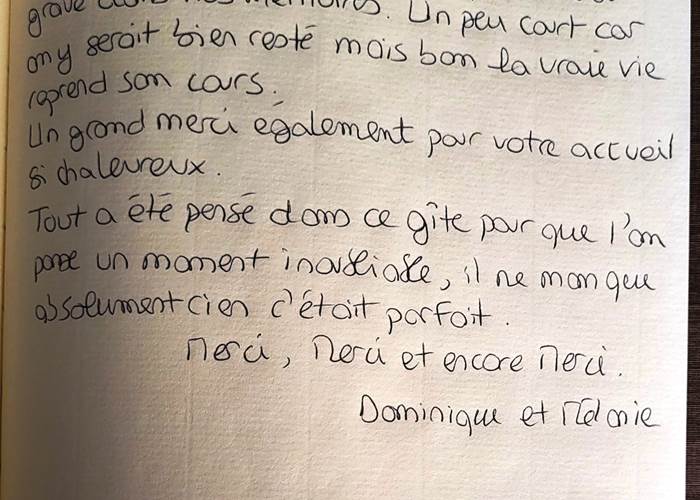 gravé dans nos mémoires. Un peu court car
on y serait bien resté mais bon la vraie vie
reprend son cours.
Un grand merci également pour votre accueil
si chaleureux.
Tout a été pensé dans ce gîte pour que l'on
passe un moment inoubliable, il ne manque
absolument rien c'était parfait.
Merci, Merci et encore Merci.
Dominique et Mélanie